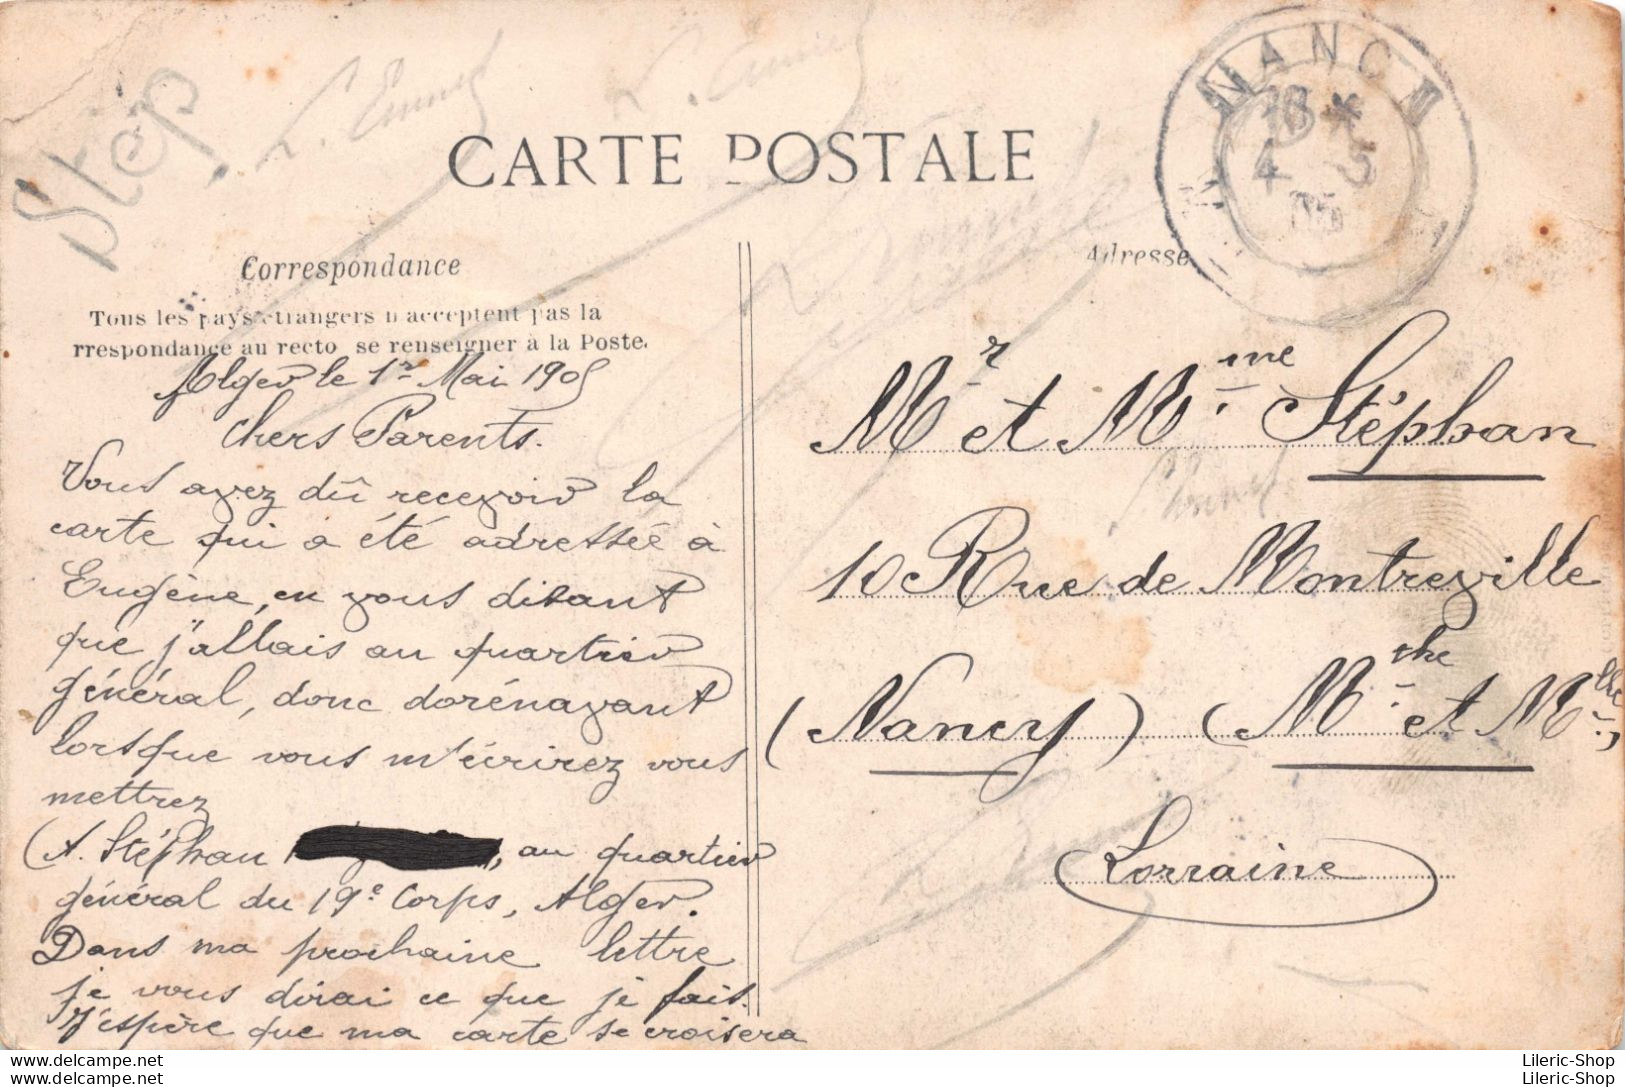 Step.
L. Emmel
CARTE POSTALE
NANCY
18 *
4 5
05
Correspondance
Tous les pays étrangers n'acceptent pas la
rrespondance au recto se renseigner à la Poste.
Adresse
Alger le 1er Mai 1905
Chers Parents.
Vous avez dû recevoir la
carte qui a été adressée à
Eugène, en vous disant
que j'allais au quartier
général, donc dorénavant
lorsque vous m'écrirez vous
mettrez
(A. Stéphan au quartier
général du 19e Corps, Alger.
Dans ma prochaine lettre
je vous dirai ce que je fais.
J'espère que ma carte se croisera
Mr et Mme Stéphan
10 Rue de Montreville
(Nancy) (Mthe et Mlle,
Lorraine
Lileric-Shop
Lileric-Shop
Lileric-Shop
Lileric-Shop